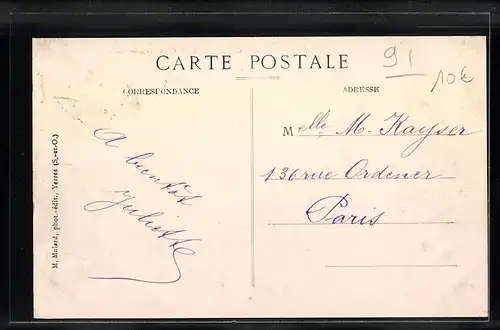 91
10€
CARTE POSTALE
CORRESPONDANCE
ADRESSE
A bientôt
Juliette
Melle M. Kayser
136 rue Ordener
Paris
M. Mulard, phot.-édit., Yerres (S.-et-O.)